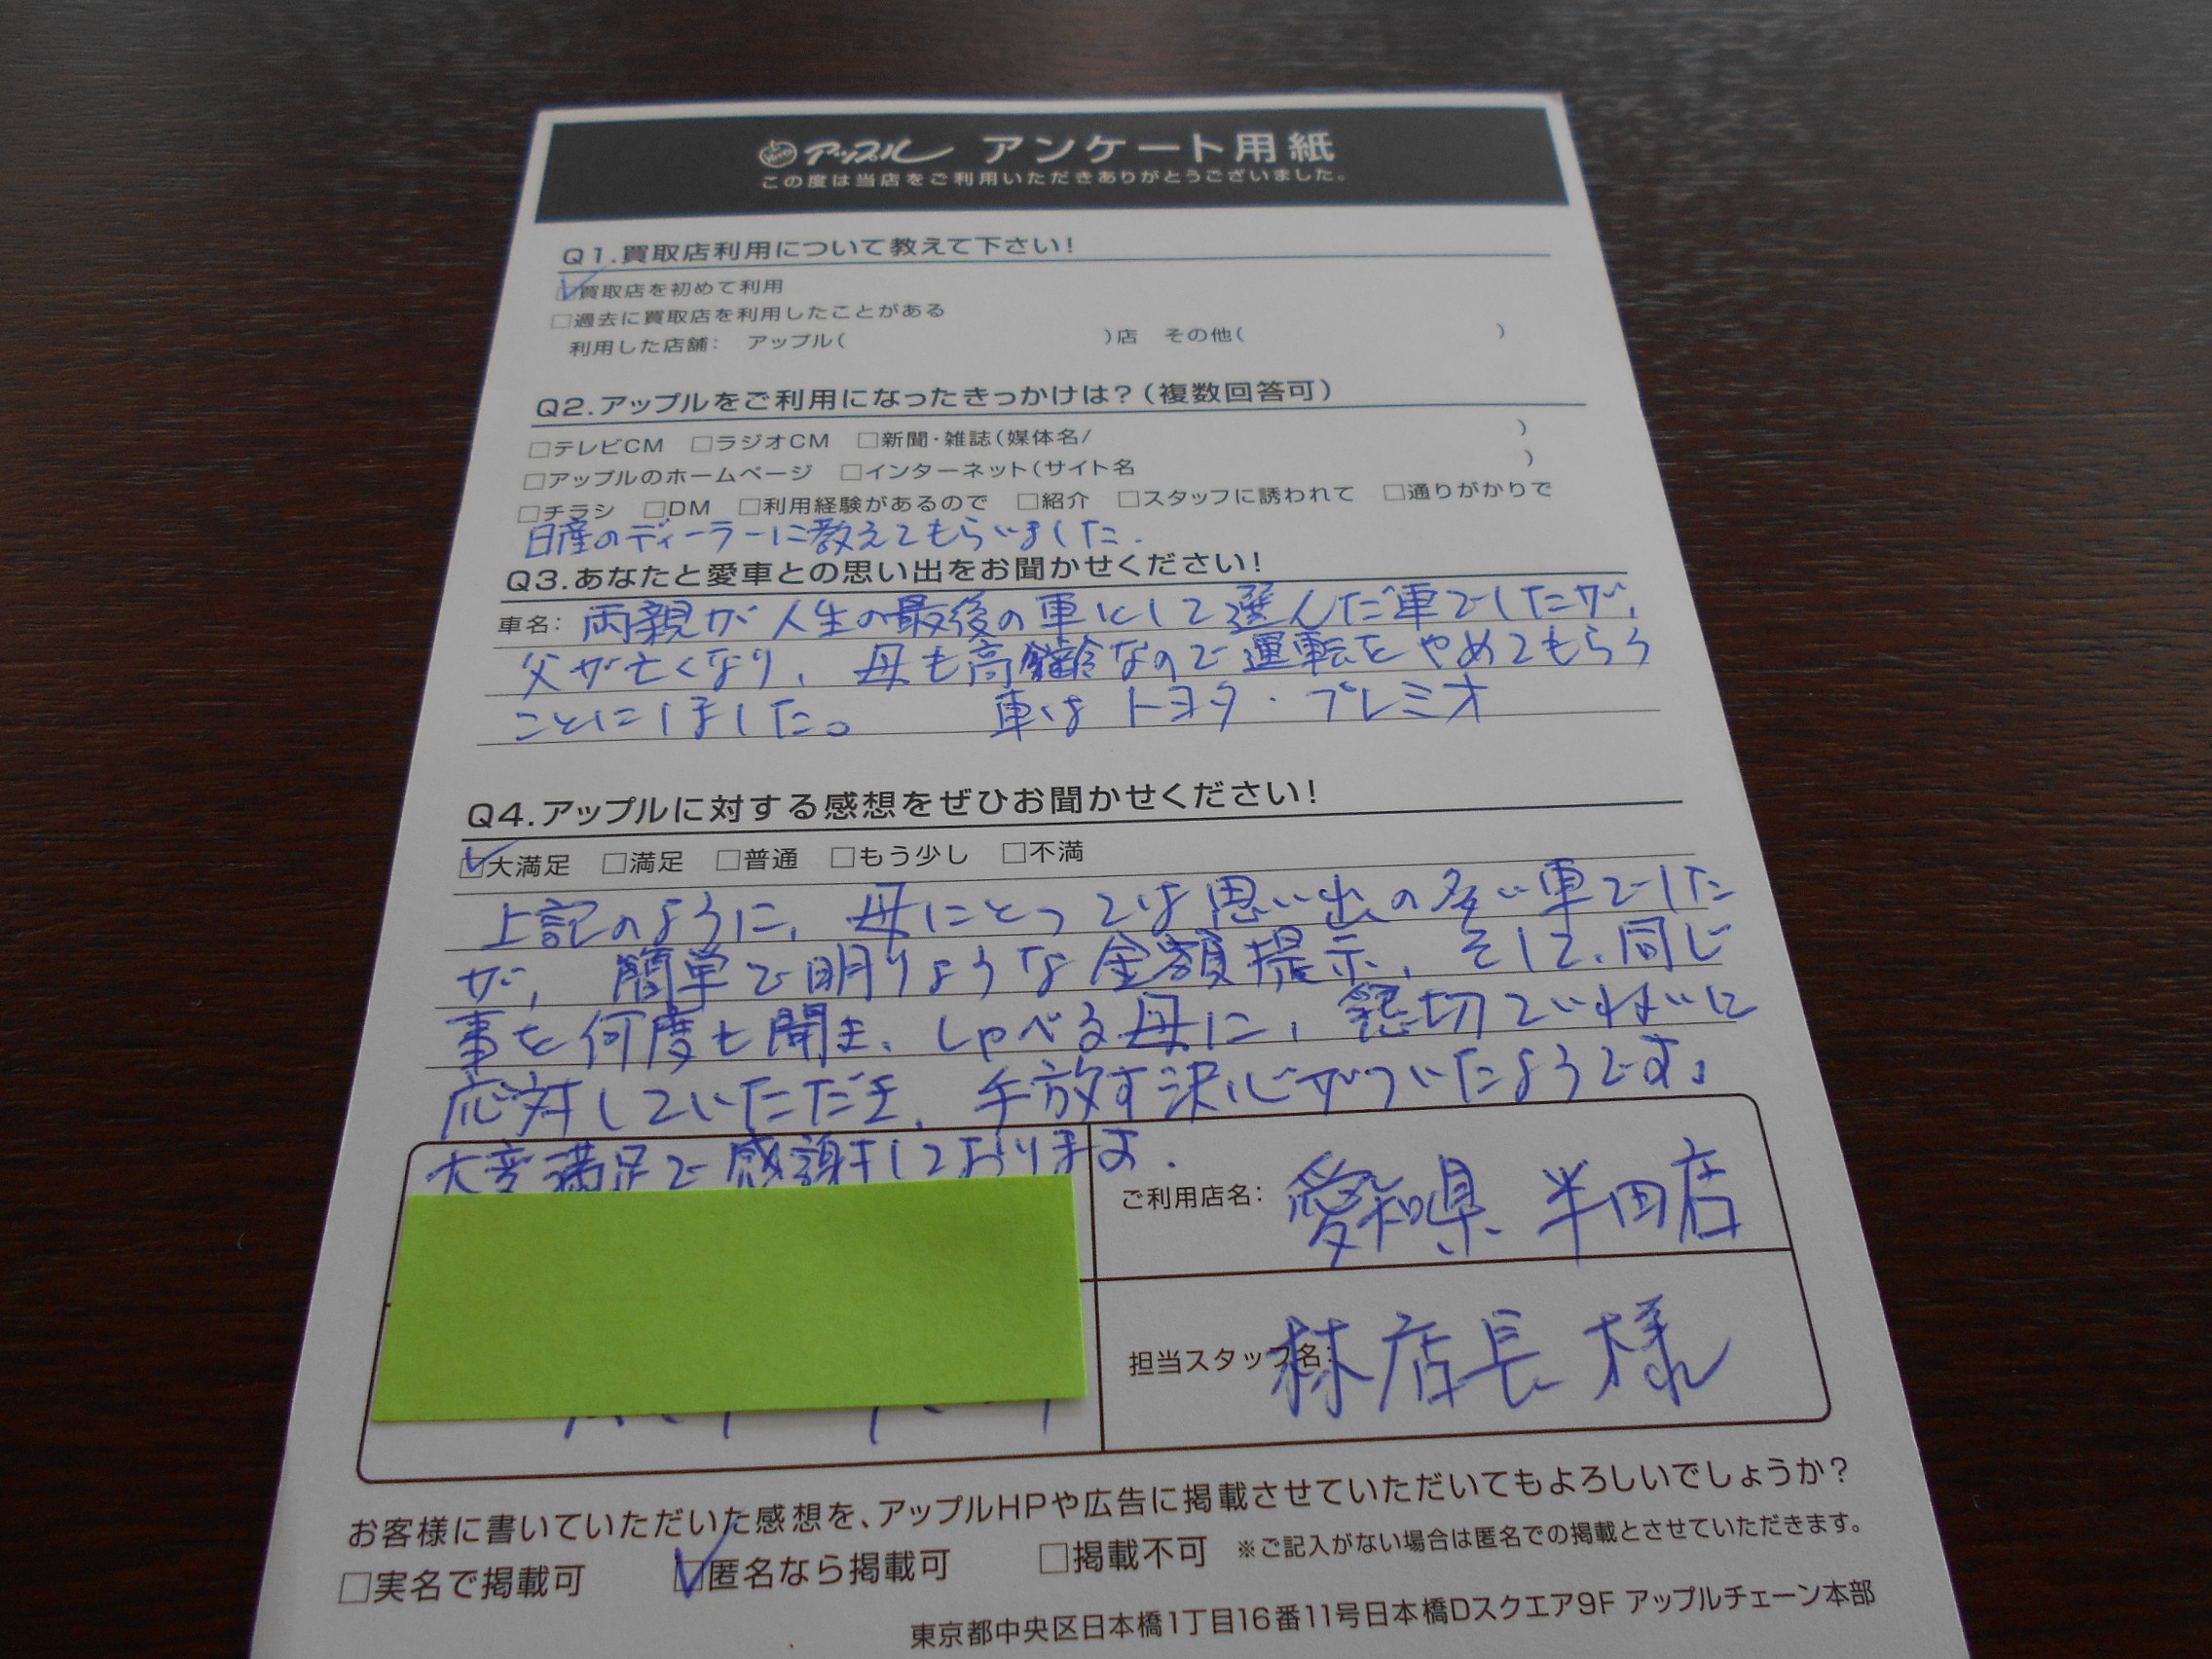 アップル アンケート用紙
この度は当店をご利用いただきありがとうございました。
Q1.買取店利用について教えて下さい!
☑買取店を初めて利用
□過去に買取店を利用したことがある
利用した店舗: アップル( )店 その他( )
Q2.アップルをご利用になったきっかけは?(複数回答可)
□テレビCM □ラジオCM □新聞・雑誌(媒体名/ )
□アップルのホームページ □インターネット(サイト名 )
□チラシ □DM □利用経験があるので □紹介 □スタッフに誘われて □通りがかりで
日産のディーラーに教えてもらいました.
Q3.あなたと愛車との思い出をお聞かせください!
車名: 両親が人生の最後の車にして選んだ車でしたが、
父が亡くなり、母も高齢なので運転をやめてもらう
ことにしました。 車はトヨタ・プレミオ
Q4.アップルに対する感想をぜひお聞かせください!
☑大満足 □満足 □普通 □もう少し □不満
上記のように、母にとっては思い出の多い車でした
が、簡単で明りょうな金額提示、そして、同じ
事を何度も聞き、しゃべる母に、懇切ていねいに
応対していただき、手放す決心がついたようです。
大変満足で感謝しております.
ご利用店名: 愛知県 半田店
担当スタッフ名: 林店長様
お客様に書いていただいた感想を、アップルHPや広告に掲載させていただいてもよろしいでしょうか?
□実名で掲載可 ☑匿名なら掲載可 □掲載不可 ※ご記入がない場合は匿名での掲載とさせていただきます。
東京都中央区日本橋1丁目16番11号日本橋Dスクエア9F アップルチェーン本部